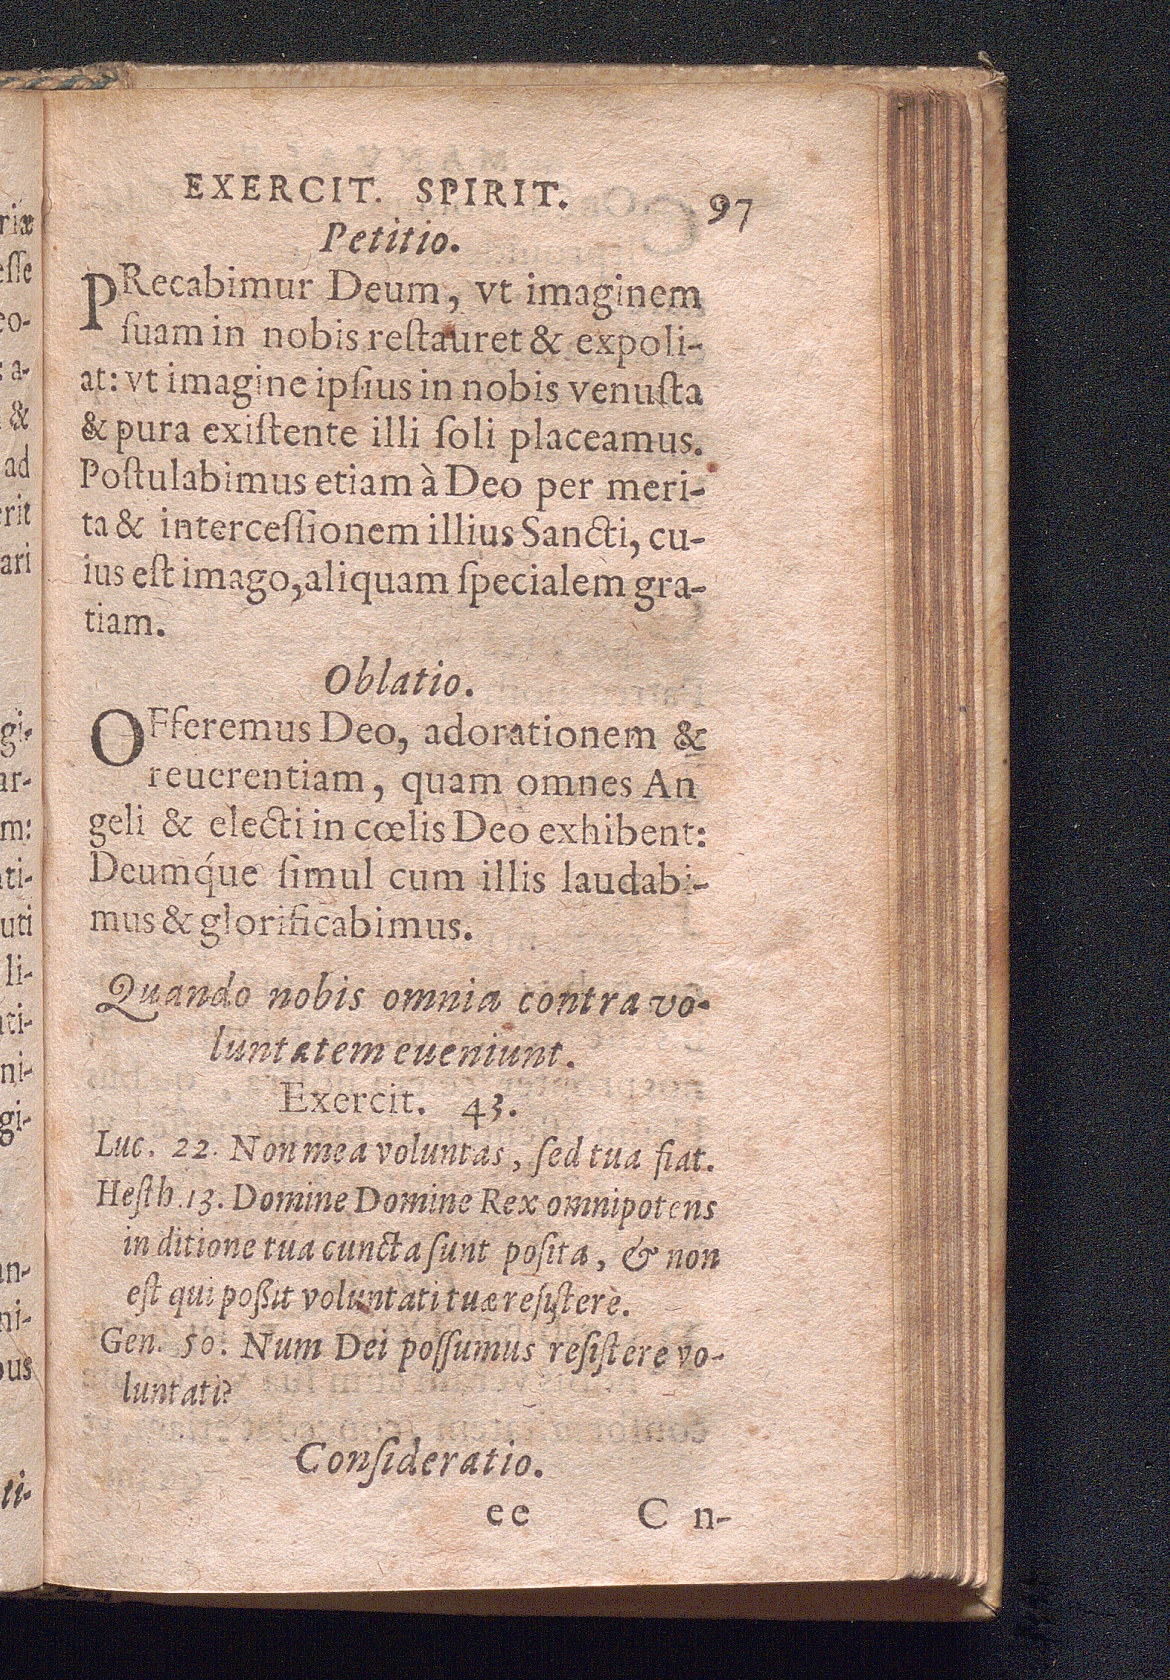 EXERCIT. SPIRIT. 97
Petitio.
PRecabimur Deum, vt imaginem
ſuam in nobis reſtauret & expoli-
at: vt imagine ipſius in nobis venuſta
& pura exiſtente illi ſoli placeamus.
Poſtulabimus etiam à Deo per meri-
ta & interceſſionem illius Sancti, cu-
ius eſt imago, aliquam ſpecialem gra-
tiam.
Oblatio.
OFferemus Deo, adorationem &
reuerentiam, quam omnes An
geli & electi in cœlis Deo exhibent:
Deumq́ue ſimul cum illis laudabi-
mus & glorificabimus.
Quando nobis omnia contra vo-
luntatem eueniunt.
Exercit. 43.
Luc. 22. Non mea voluntas, ſed tua fiat.
Heſth. 13. Domine Domine Rex omnipotens
in ditione tua cuncta ſunt poſita, & non
eſt qui poßit voluntati tuæ reſiſtere.
Gen. 50. Num Dei poſſumus reſiſtere vo-
luntati?
Conſideratio.
ee C n-